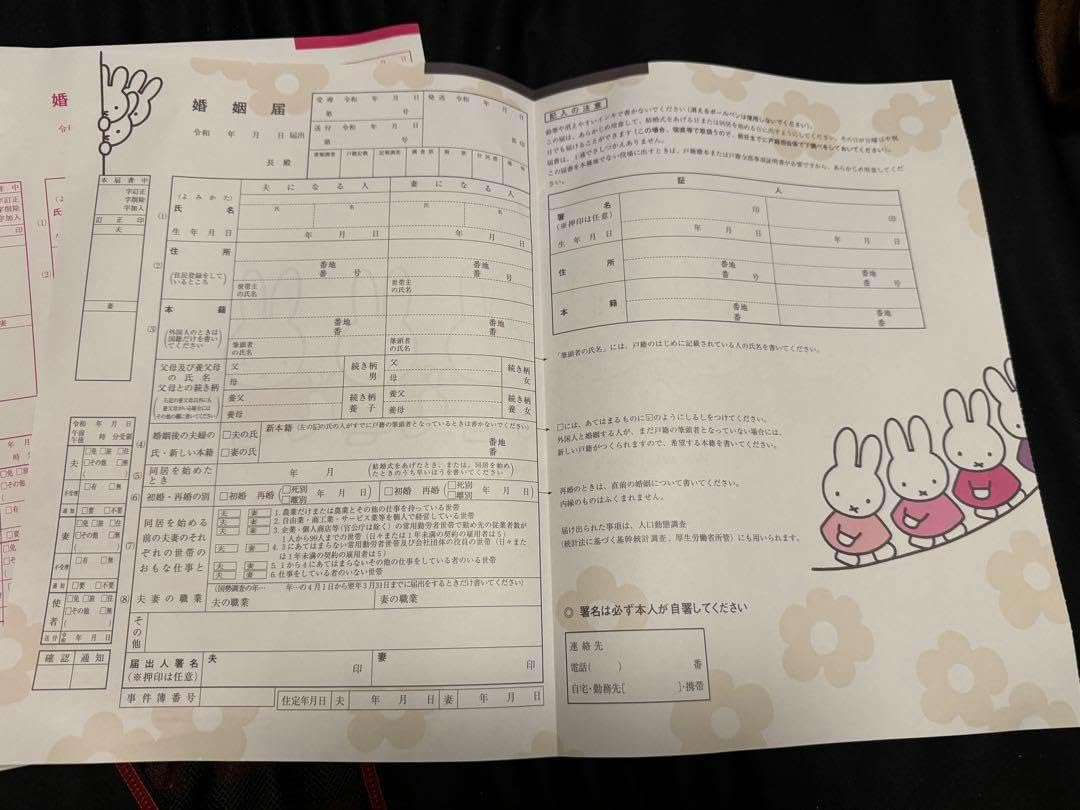 婚姻届
令和 年 月 日 届出
長 殿
受理 令和 年 月 日
第 号
送付 令和 年 月 日
第 号
発送 令和 年 月 日
長 印
書類調査 戸籍記載 記載調査 調査票 附票 住民票 通知
本届書中
字訂正
字削除
字加入
訂正印
夫
妻
夫になる人 妻になる人
(1)
(よみかた)
氏名
氏 名 氏 名
生年月日 年 月 日 年 月 日
(2)
住所
(住民登録をして
いるところ)
番地
番 号
番地
番 号
世帯主
の氏名
世帯主
の氏名
(3)
本籍
(外国人のときは
国籍だけを書い
てください)
番地
番
番地
番
筆頭者
の氏名
筆頭者
の氏名
父母及び養父母
の氏名
父母との続き柄
父
母
続き柄
男
父
母
続き柄
女
右記の養父母以外にも
養父母がいる場合には
その他の欄に書いてください
養父
養母
続き柄
養子
養父
養母
続き柄
養女
(4)
婚姻後の夫婦の
氏・新しい本籍
□夫の氏
□妻の氏
新本籍(左の☑の氏の人がすでに戸籍の筆頭者となっているときは書かないでください)
番地
番
(5)
同居を始めた
とき
年 月
(結婚式をあげたとき、または、同居を始め
たときのうち早いほうを書いてください)
(6)
初婚・再婚の別
□初婚 再婚(□死別 □離別 年 月 日)
□初婚 再婚(□死別 □離別 年 月 日)
(7)
同居を始める
前の夫妻のそれ
ぞれの世帯の
おもな仕事と
夫 妻 1.農業だけまたは農業とその他の仕事を持っている世帯
夫 妻 2.自由業・商工業・サービス業等を個人で経営している世帯
夫 妻 3.企業・個人商店等(官公庁は除く)の常用勤労者世帯で勤め先の従業者数が
1人から99人までの世帯(日々または1年未満の契約の雇用者は5)
夫 妻 4.3にあてはまらない常用勤労者世帯及び会社団体の役員の世帯(日々また
は1年未満の契約の雇用者は5)
夫 妻 5.1から4にあてはまらないその他の仕事をしている者のいる世帯
夫 妻 6.仕事をしている者のいない世帯
(8)
夫妻の職業
(国勢調査の年… 年…の4月1日から翌年3月31日までに届出をするときだけ書いてください)
夫の職業 妻の職業
その他
届出人署名
(※押印は任意)
夫 印 妻 印
事件簿番号
住定年月日 夫 年 月 日 妻 年 月 日
令和 年 月 日
午前
午後 時 分受領
夫
□免 □旅 □住
□その他 □無
( )
不受理 □有 □無
通知 □要 □不要
妻
□免 □旅 □住
□その他 □無
( )
不受理 □有 □無
通知 □要 □不要
使者
□免 □旅 □住
□その他 □無
( )
送付 令和 年 月 日
確認 通知
記入の注意
鉛筆や消えやすいインキで書かないでください(消えるボールペンは使用しないでください)。
証人
署名
(※押印は任意)
印 印
生年月日 年 月 日 年 月 日
住所
番地
番 号
番地
番 号
本籍
番地
番
番地
番
「筆頭者の氏名」には、戸籍のはじめに記載されている人の氏名を書いてください。
□には、あてはまるものに☑のようにしるしをつけてください。
外国人と婚姻する人が、まだ戸籍の筆頭者となっていない場合には、
新しい戸籍がつくられますので、希望する本籍を書いてください。
再婚のときは、直前の婚姻について書いてください。
内縁のものはふくまれません。
届け出られた事項は、人口動態調査
(統計法に基づく基幹統計調査、厚生労働省所管)にも用いられます。
◎ 署名は必ず本人が自署してください
連絡先
電話( ) 番
自宅・勤務先[ ]・携帯
婚